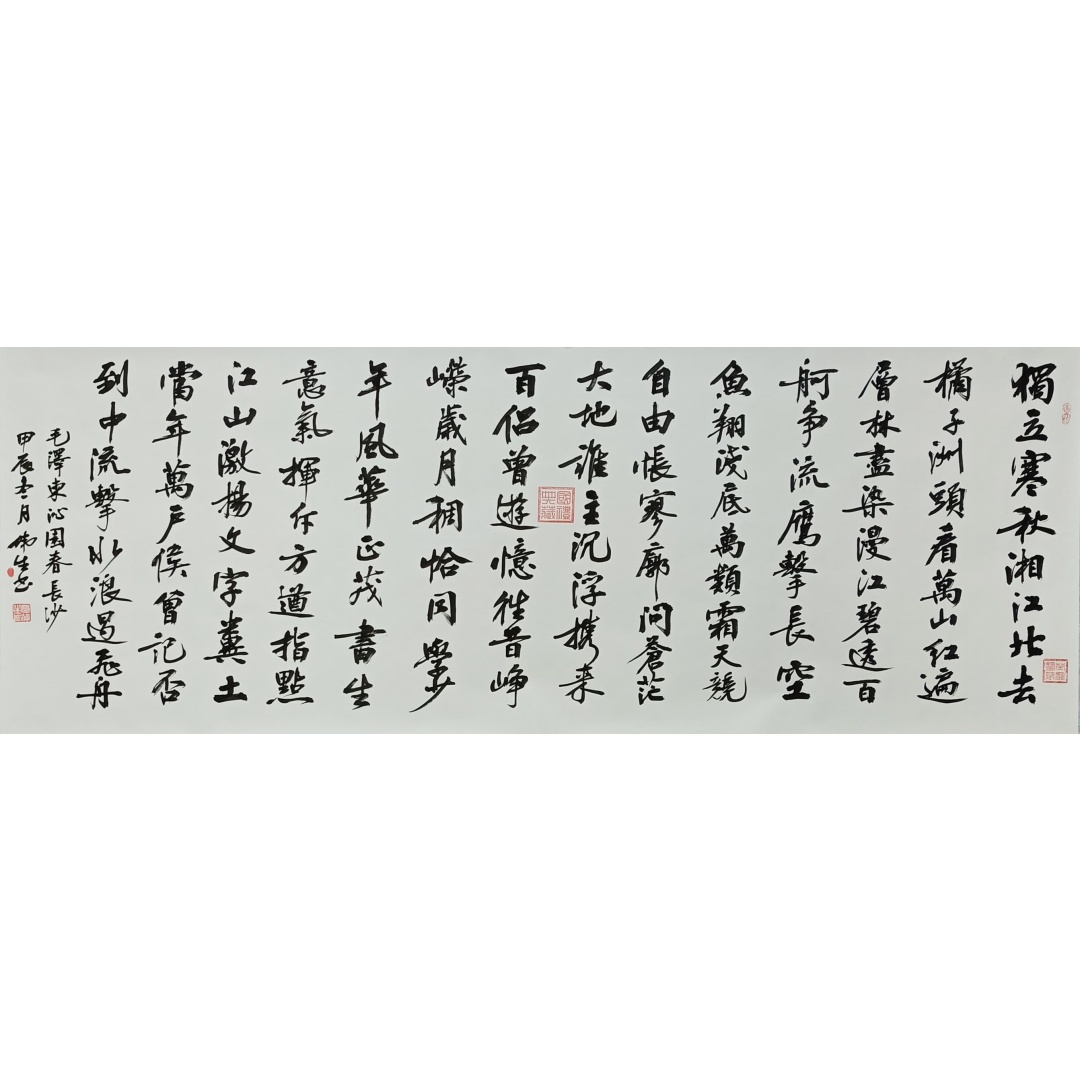 獨立寒秋湘江北去
橘子洲頭看萬山紅遍
層林盡染漫江碧透百
舸争流鹰擊長空
魚翔浅底萬類霜天競
自由悵寥廓問蒼茫
大地誰主沉浮携来
百侣曾遊憶往昔峥
嶸歲月稠恰同學少
年風華正茂書生
意氣揮斥方遒指點
江山激揚文字糞土
當年萬戶侯曾記否
到中流擊水浪遏飛舟
毛澤東沁園春長沙
甲辰冬月偉生書
國禮典藏